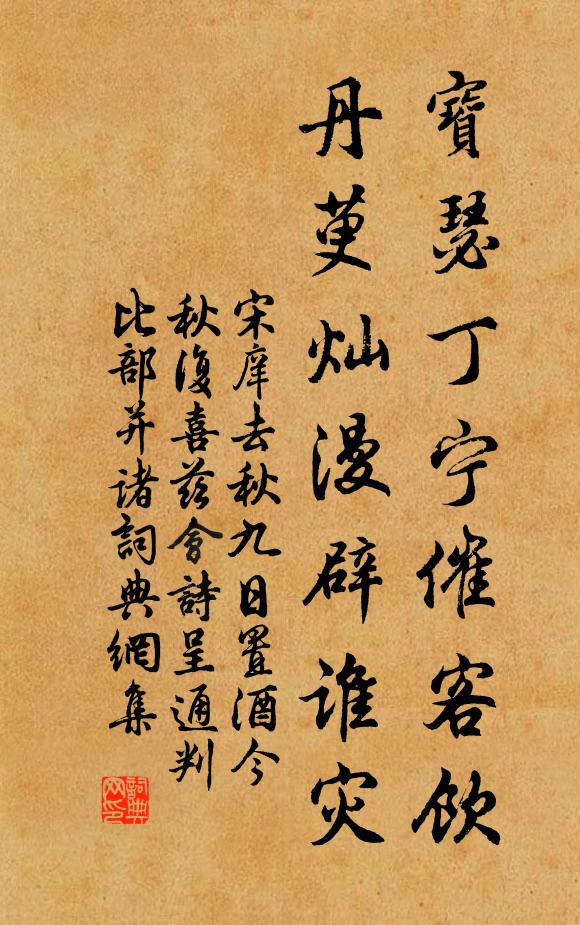 寶瑟丁宁催客飲
丹萸灿漫辟誰灾
宋庠去秋九日置酒今
秋復喜茲會詩呈通判
比部并諸詞典網集
詞典网印